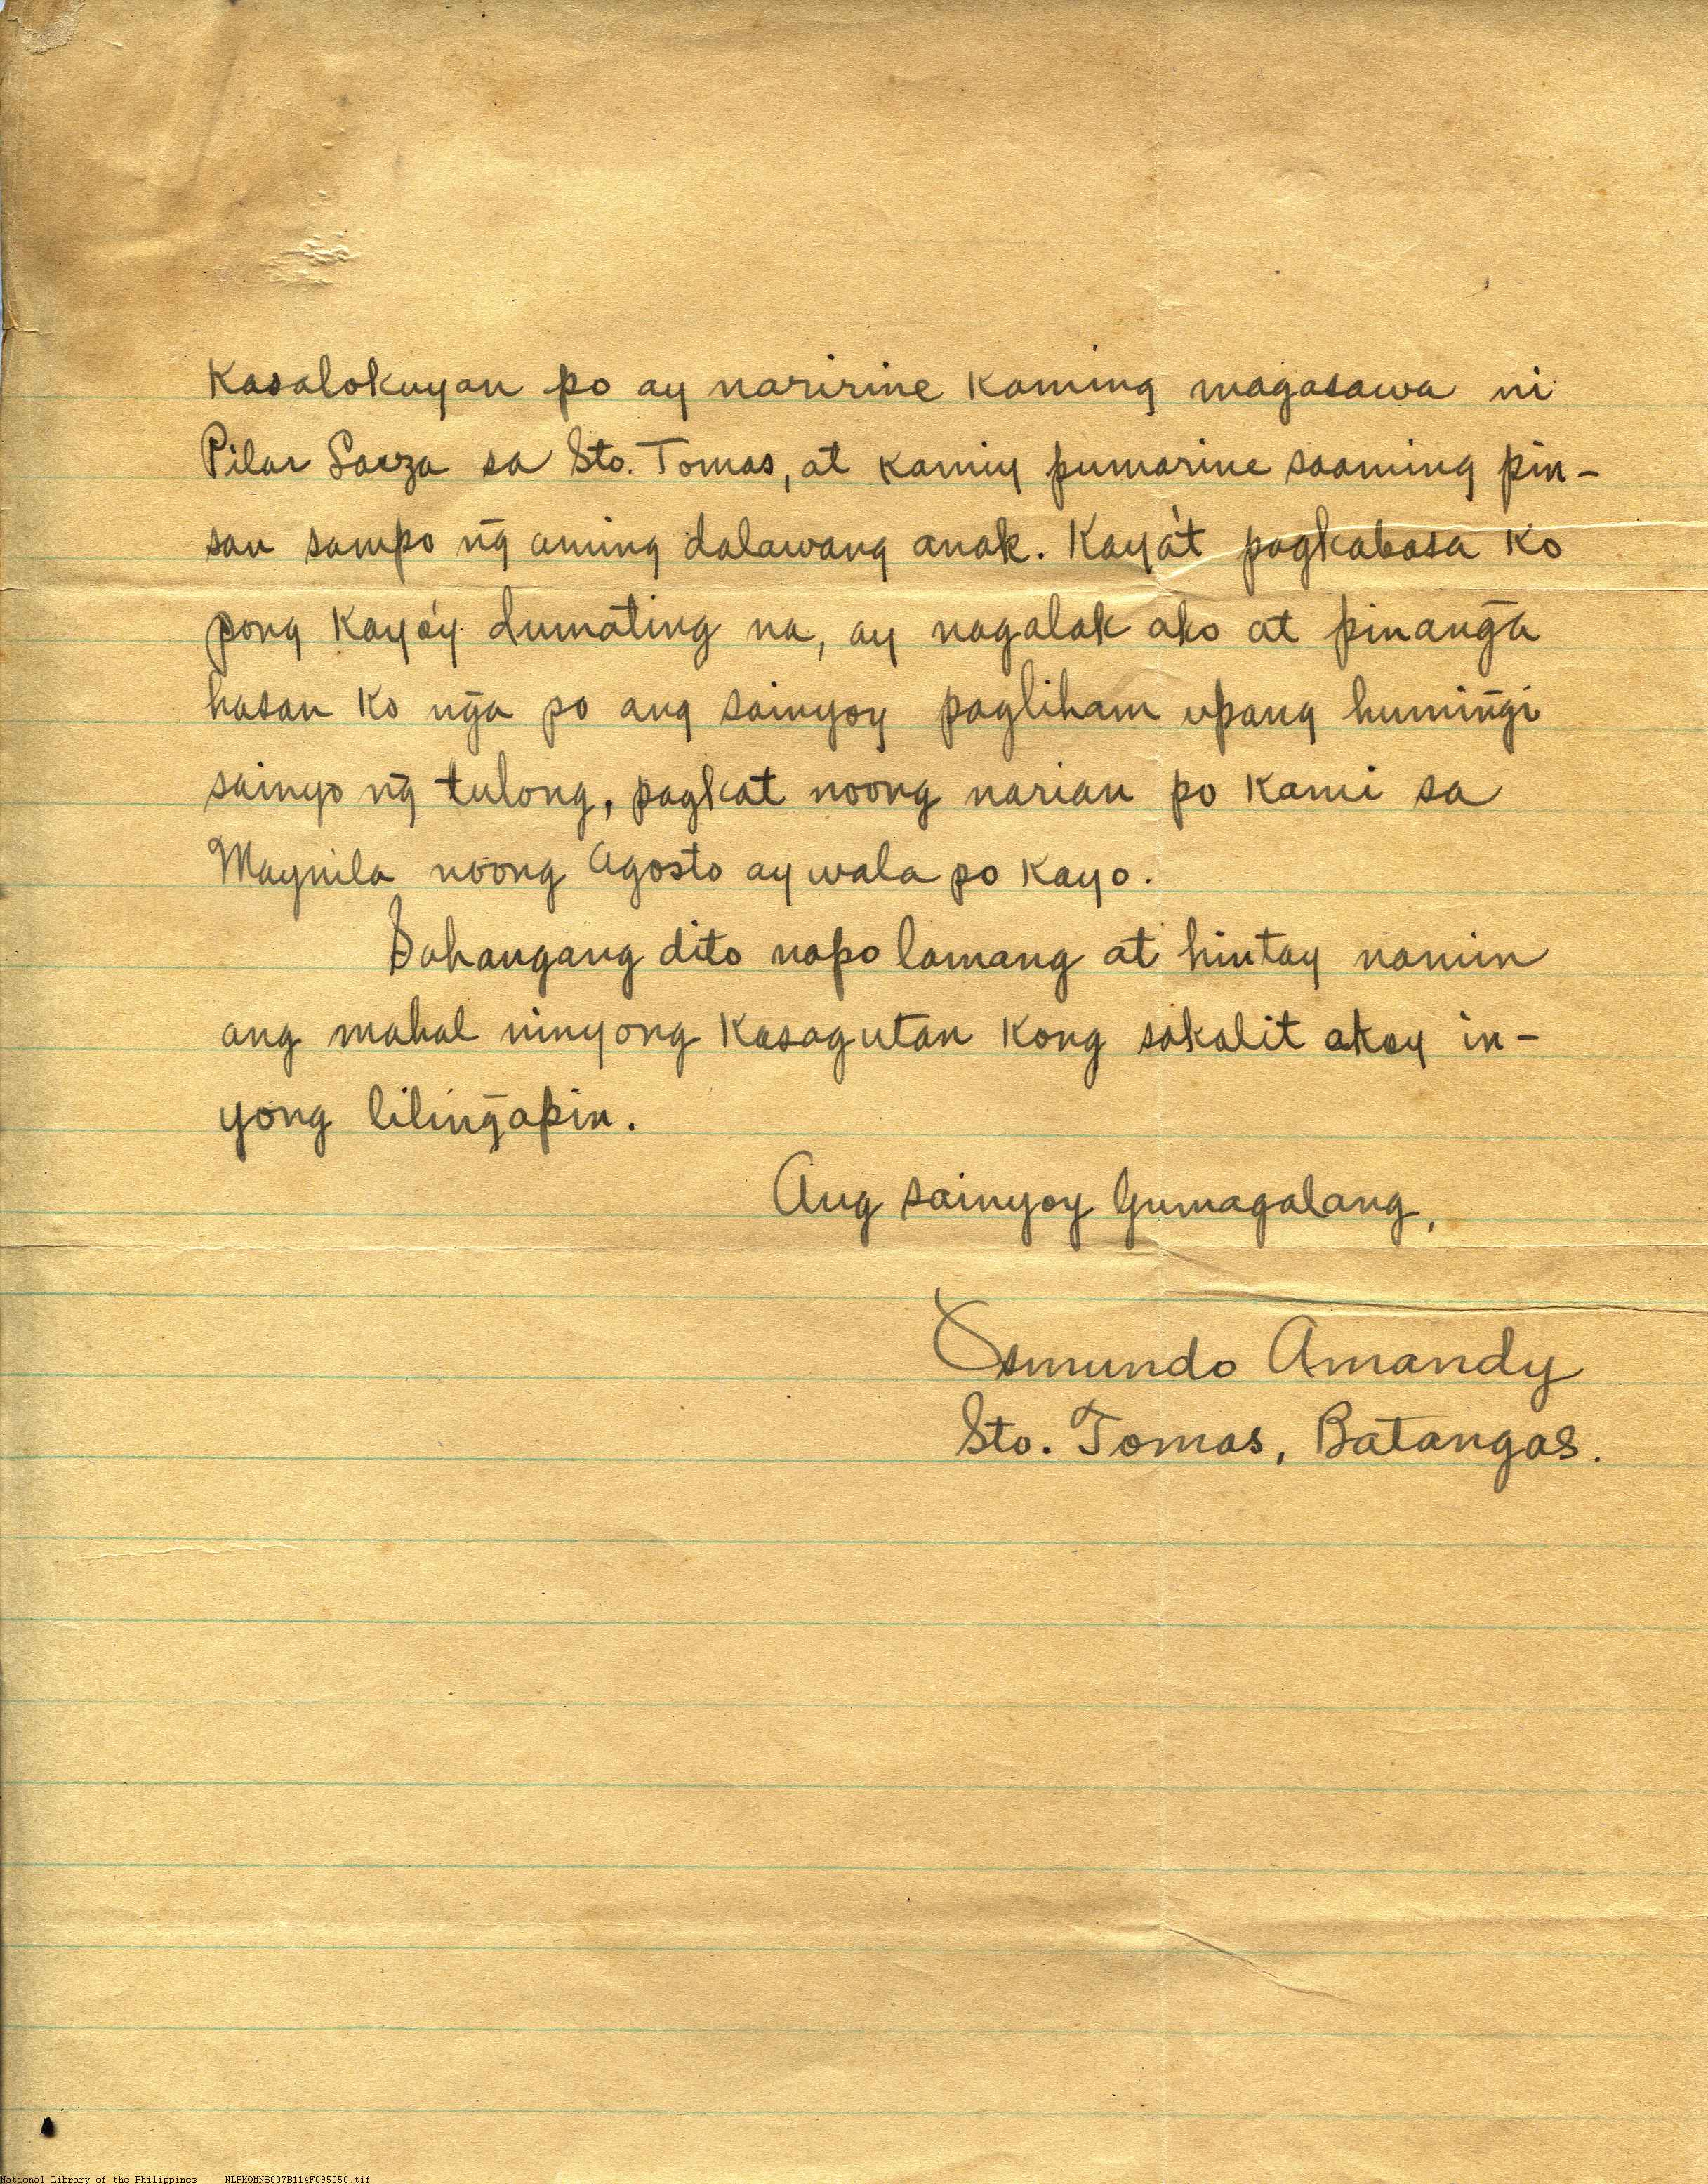 Kasalokuyan po ay naririne kaming magasawa ni
Pilar Saeza sa Sto. Tomas, at kamiy pumarine saaming pin-
san sampo n̄g aming dalawang anak. Kaya't pagkabasa ko
pong kayo'y dumating na, ay nagalak ako at pinan̄ga
hasan ko n̄ga po ang sainyoy pagliham upang humin̄gi
sainyo n̄g tulong, pagkat noong narian po kami sa
Maynila noong Agosto ay wala po kayo.
Sahangang dito napo lamang at hintay namin
ang mahal ninyong kasagutan kong sakalit akoy in-
yong lilin̄gapin.
Ang sainyoy Gumagalang,
Osmundo Amandy
Sto. Tomas, Batangas.
National Library of the Philippines NLPMQMNS007B114F095050.tif